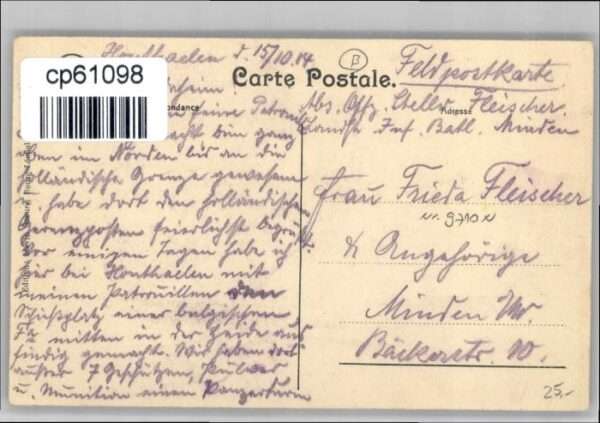 Houthaelen d. 15/10.14
B
Feldpostkarte
cp61098
Carte Postale.
ondance
Adresse
Abs. Offz. Stellv. Fleischer
Landst. Inf. Batl. Minden
eine Patrou
bin ganz
oben im Norden bis an die
holländische Grenze gewesen
habe dort den holländischen
Grenzposten feierlichst begrüßt
Vor einigen Tagen habe ich
hier bei Houthaelen mit
meinen Patrouillen den
Schießplatz einer belgischen
mitten in der Heide aus
findig gemacht. Wir haben dort
außer 7 Geschützen, Pulver
u. Munition einen Panzerturm
Frau Frieda Fleischer
Nr. 9710
& Angehörige
Minden
Bäckerstr. 10.
25,-